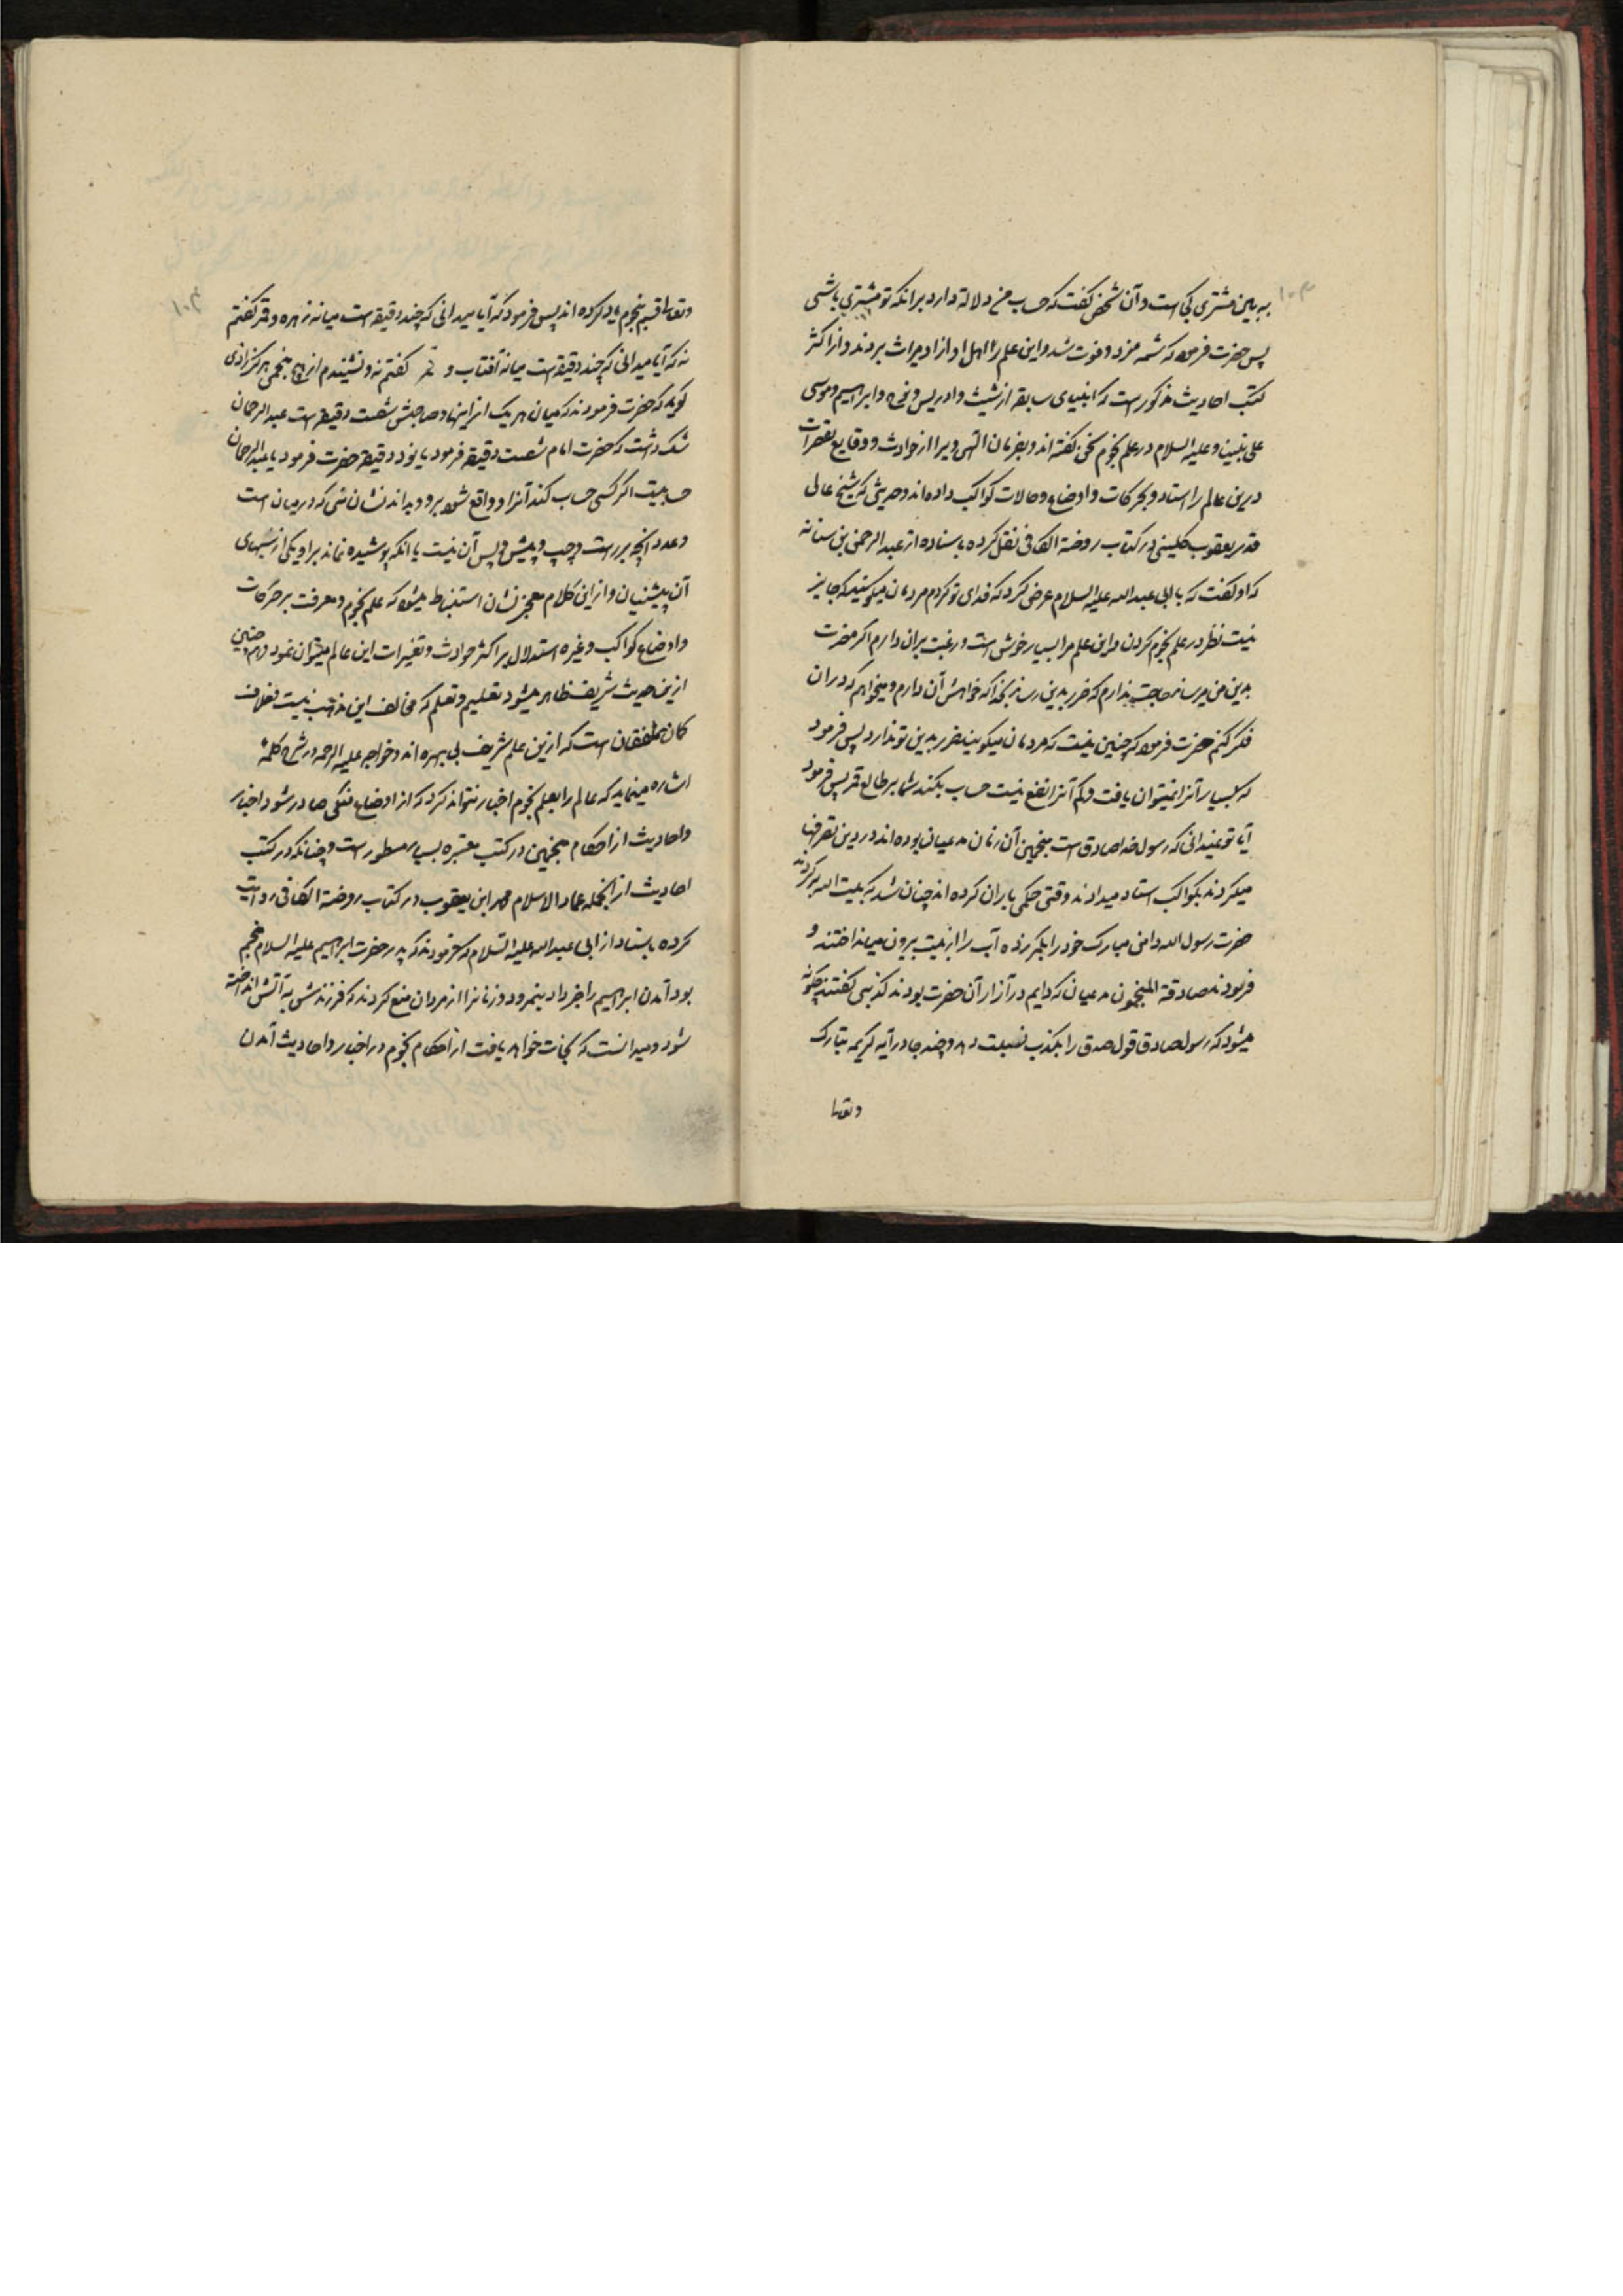 به بین مشتری کجاست و آن شخص گفت که حساب من دلالة دارد برانکه تو مشتری باشی
پس حضرت فرمود که شمه مزد و فوت شد و این علم را اهل او ازاد میراث بردند و از اکثر
کتب احادیث مذکور است که انبیای سابقه از شیث و ادریس و نوح و ابراهیم و موسی
علی نبینا و علیه السلام در علم نجوم سخن گفته اند و بفرمان الهی ویرا از حوادث و وقایع
درین عالم را استاد و بحرکات و اوضاع و حالات کواکب داده اند و حدیثی که شیخ عالی
قدر یعقوب کلینی در کتاب روضة الکافی نقل کرده باسناده از عبد الرحمن بن سیابه
که او گفت که بابی عبد الله علیه السلام عرض کرد که فدای تو گردم مردمان میگویند که جایز
نیست نظر در علم نجوم کردن و این علم مرا بسیار خوش است و رغبت بران دارم اگر مضرت
بدین من میرساند حاجت ندارم که ضرر بدین رساند بخدا که خواهش آن دارم و میخواهم که دران
فکر کنم حضرت فرمود که چنین نیست که مردمان میگویند ضرر بدین تو ندارد پس فرمود
که بسیار آنرا نمیتوان یافت و کم آنرا نفع نیست حساب میکند شما بر طالع قمر پس فرمود
آیا تو نمیدانی که رسول خدا صادق است منجمین آن زمان مدعیان بوده اند در دین تصرفها
میکردند بکواکب استاد میدادند وقتی حکمی باران کرده اند چنان شد که بیت الله
حضرت رسول الله دامن مبارک خود را بکمر زده آب را از بیت بیرون میانداختند و
فرمودند صادقة المنجمون مدعیان که دایم در آزار آن حضرت بودند کذبی گفتند چگونه
میشود که رسول صادق قول صدق را بکذب نسبت دهد و چند جا در آیه کریمه تبارک
وتعا
وتعالی قسم بنجوم یاد کرده اند پس فرمود که آیا میدانی که چند دقیقه است میانه زهره و قمر گفتم
نه که آیا میدانی که چند دقیقه است میانه آفتاب و قمر گفتم نه و نشنیدم از هیچ منجمی هرگز
گوید که حضرت فرمودند که میان هر یک از اینها و صاحبش شصت دقیقه است عبد الرحمان
شک داشت که حضرت امام شصت دقیقه فرمود یا نود دقیقه حضرت فرمود یا عبد الرحمان
حسابیست اگر کسی حساب کند آنرا و واقع شود برو و بداند نشان نئی که در میان است
و عدد آنچه بر راست و چپ و پیش و پس آن نیست یا انکه پوشیده نماند بر او یکی از نئیهای
آن پیشنیان و از این کلام معجز نشان استنباط میشود که علم نجوم و معرفت بر حرکات
و اوضاع کواکب و غیره استدلال بر اکثر حوادث و تغیرات این عالم میتوان نمود و هم چنین
ازین حدیث شریف ظاهر میشود تعلیم و تعلم که مخالف این مذهب نیست بخلاف
کمان متفقهان است که ازین علم شریف بی بهره اند و خواجه علیه الرحمه در شرح کلمهٔ
اشاره مینماید که عالم را بعلم نجوم اخبار نتواند کرد که از اوضاع فلکی صادر شود اخبار
و احادیث از احکام منجمین در کتب معتبره بسیار مسطور است و چنانکه در کتب
احادیث از انجمله عماد الاسلام محمد ابن یعقوب در کتاب روضة الکافی روایت
کرده باسناد از ابی عبد الله علیه السلام که فرمودند که پدر حضرت ابراهیم علیه السلام منجم
بود آمدن ابراهیم را خبر داد بنمرود و زنانرا از مردان منع کردند که فرزندش به آتش انداخته
شود و میدانست که نجات خواهد یافت از احکام نجوم در اخبار و احادیث آمدن